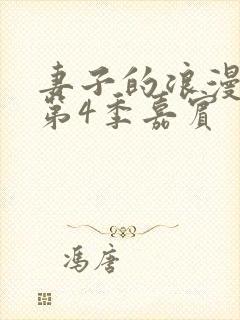 妻子的浪漫
第4季嘉宾
冯唐